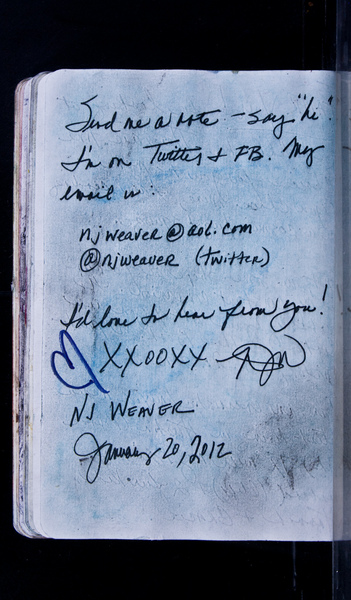 Send me a note - say "hi".
I'm on Twitter & FB. My
email is:
njweaver@aol.com
@njweaver (twitter)
I'd love to hear from you!
XXOOXX - NJW
NJ WEAVER
January 20, 2012